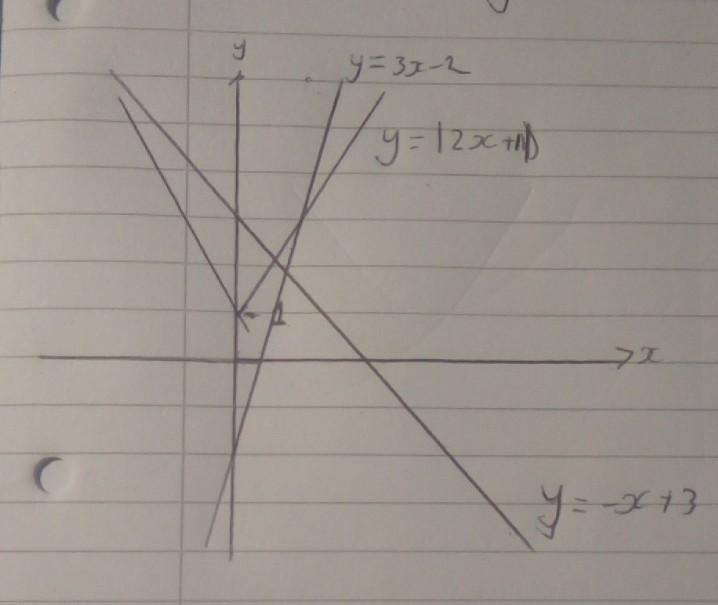 y
y=3x-2
y=|2x+1|
1
x
y=-x+3